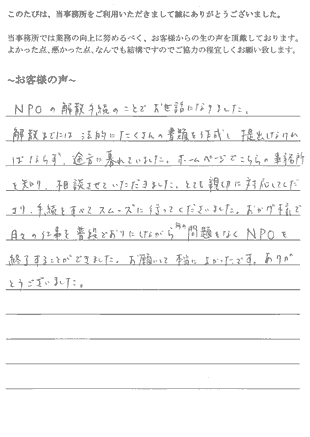 このたびは、当事務所をご利用いただきまして誠にありがとうございました。
当事務所では業務の向上に努めるべく、お客様からの生の声を頂戴しております。
よかった点、悪かった点、なんでも結構ですのでご協力の程宜しくお願い致します。
~お客様の声~
NPOの解散手続のことでお世話になりました。
解散までには法的にたくさんの書類を作成し提出しなけれ
ばならず、途方に暮れていました。ホームページでこちらの事務所
を知り、相談させていただきました。とても親切に対応してくだ
さり、手続をすべてスムーズに行ってくださいました。おかげ様で
日々の仕事を普段どおりにしながら何の問題もなくNPOを
終了することができました。お願いして本当によかったです。ありが
とうございました。